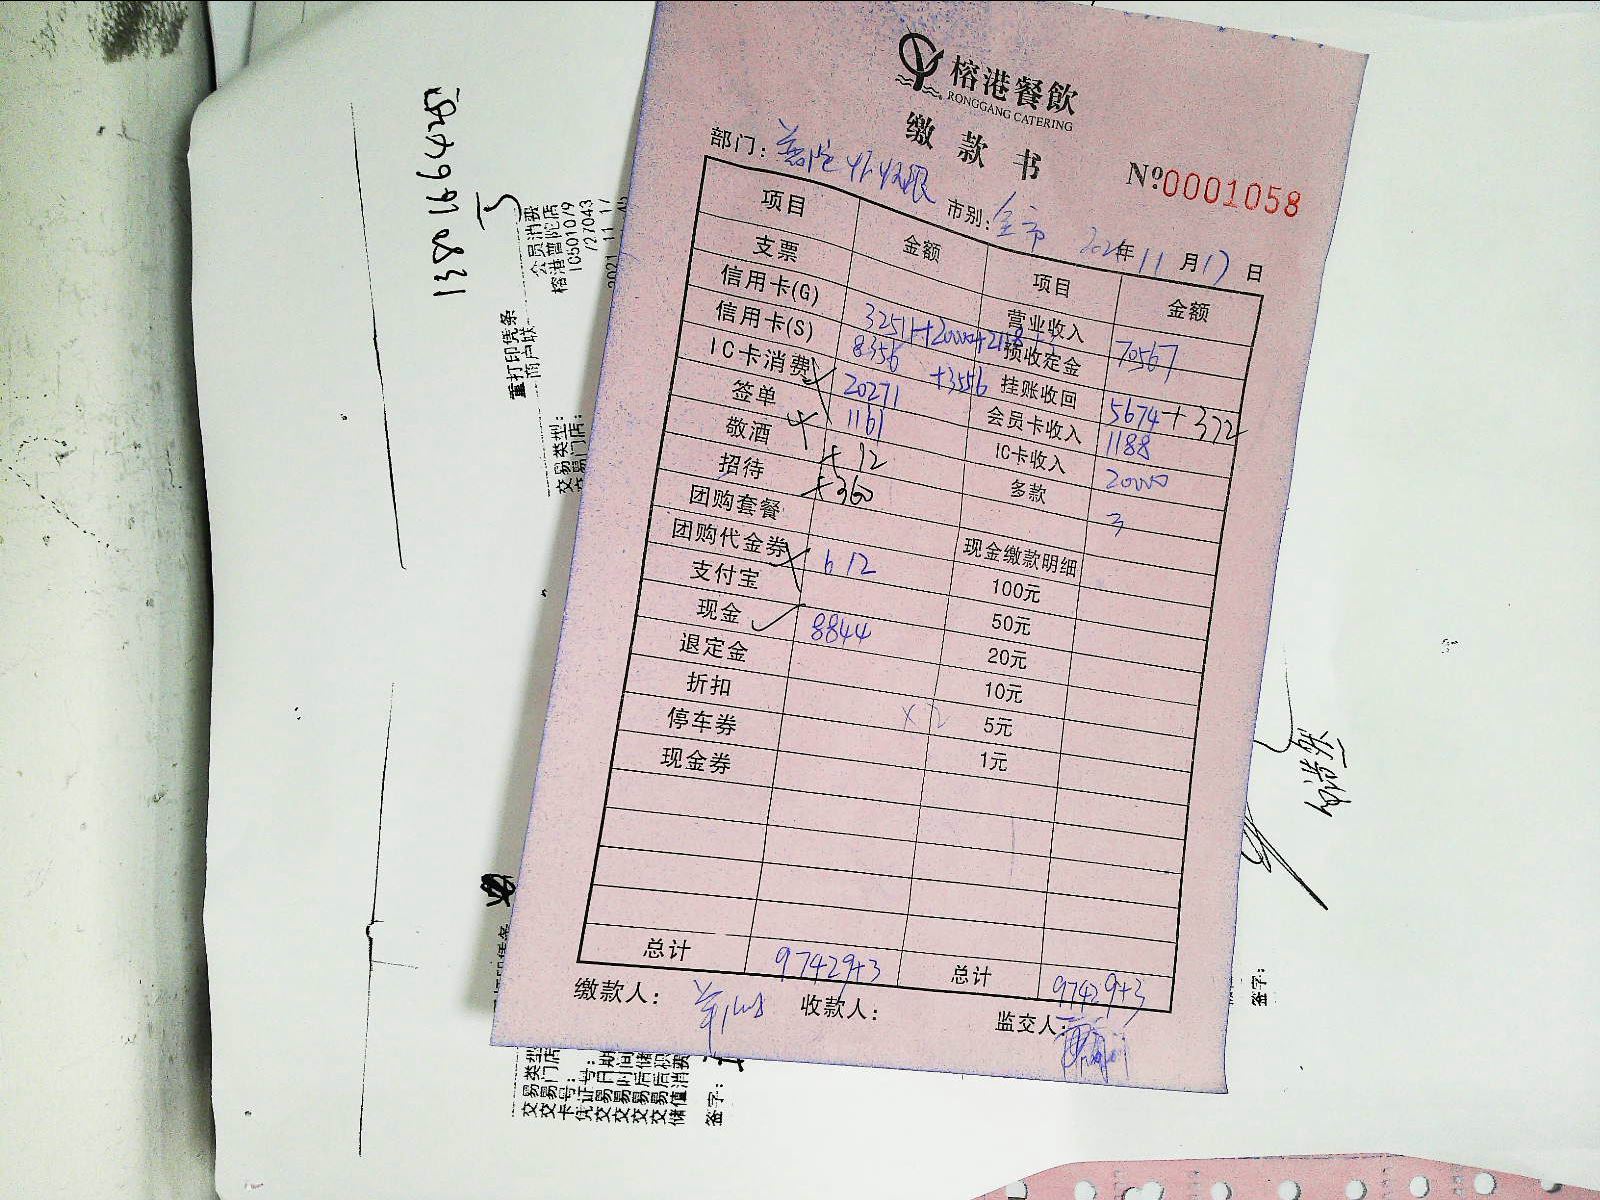 榕港餐飲
RONGGANG CATERING
缴款书
No:0001058
部门：普陀
市别：全市 2021年11月17日
项目 金额 项目 金额
支票 营业收入 70567
信用卡(G) 32511+20000+2118 预收定金
信用卡(S) 8356 +3556 挂账收回 5674+372
IC卡消费 20271 会员卡收入 1188
签单 1161 IC卡收入 20000
敬酒 +12 多款 3
招待 +360
团购套餐 现金缴款明细
团购代金券 612 100元
支付宝 50元
现金 8844 20元
退定金 10元
折扣 ×2 5元
停车券 1元
现金券
总计 97429+3 总计 97429+3
缴款人： 收款人： 监交人：
13801664285
会员消费
榕港普陀店
10501079
727043
重打印凭条
商户联
交易类型：
交易门店：
交易类型
交易门店
卡号：
凭证号：
交易日期
交易时间
交易后储
交易后积
储值消费
签字：
签字：